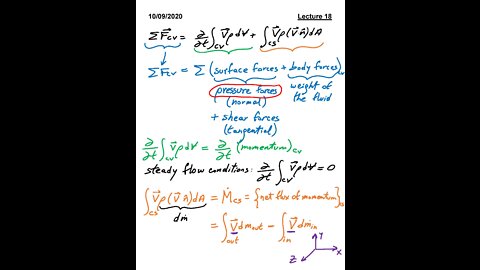 10/09/2020 Lecture 18
ΣF⃗cv = ∂/∂t ∫cv V⃗ρdV + ∫cs V⃗ρ(V⃗·n̂)dA
ΣF⃗cv = Σ(surface forces + body forces)cv
pressure forces weight of
(normal) the fluid
+ shear forces
(tangential)
∂/∂t ∫cv V⃗ρdV = ∂/∂t (momentum)cv
steady flow conditions: ∂/∂t ∫cv V⃗ρdV = 0
∫cs V⃗ρ(V⃗·n̂)dA = Ṁcs = {net flux of momentum}cs
dṁ
= ∫out V⃗dṁout − ∫in V⃗dṁin
Y
X
Z